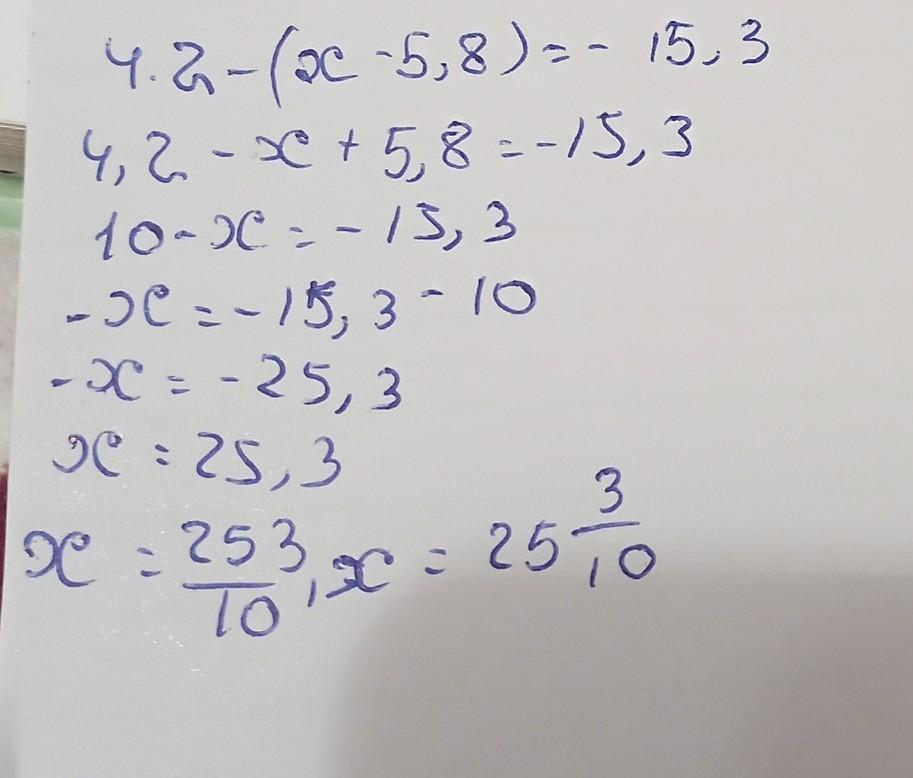 4.2-(x-5,8)=-15,3
4,2-x+5,8=-15,3
10-x=-15,3
-x=-15,3-10
-x=-25,3
x=25,3
x=253/10, x=25 3/10